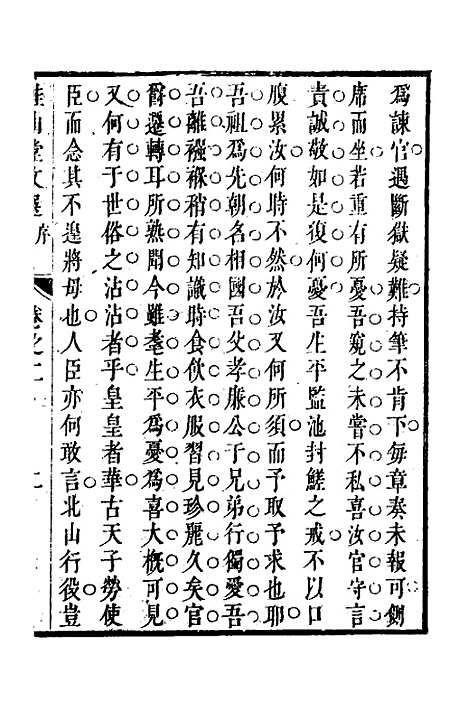 為諫官遇斷獄疑難持筆不肯下每章奏未報可劍
席而坐若重有所憂吾窺之未嘗不私喜汝官守言
責誠敬如是復何憂吾生平監池封鮓之戒不以口
腹累汝何時不然於汝又何所須而予取予求也耶
吾祖為先朝名相國吾父孝廉公子兄弟行獨愛吾
吾離襁褓稍有知識時食飲衣服習見珍麗久矣官
爵遷轉耳所熟聞今雖耄生平為憂為喜大概可見
又何有于世俗之沾沾者乎皇皇者華古天子勞使
臣而念其不遑將母也人臣亦何敢言北山行役豈
堂文選 序 卷之二